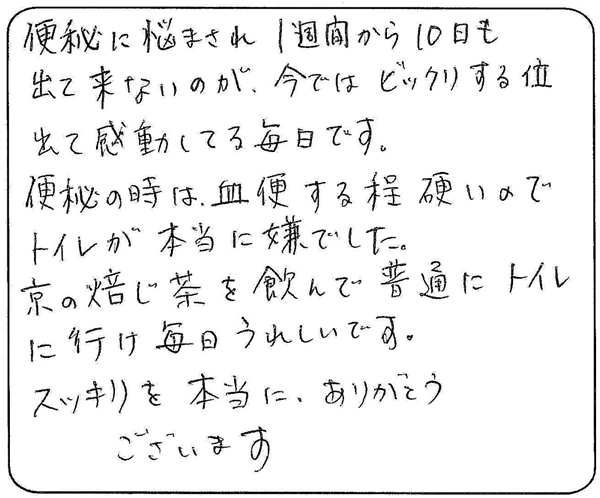 便秘に悩まされ 1週間から10日も
出て来ないのが、今では ビックリする位
出て感動してる毎日です。
便秘の時は、血便する程 硬いので
トイレが 本当に嫌でした。
京の焙じ茶を飲んで 普通に トイレ
に行け 毎日うれしいです。
スッキリを 本当に、ありがとう
ございます